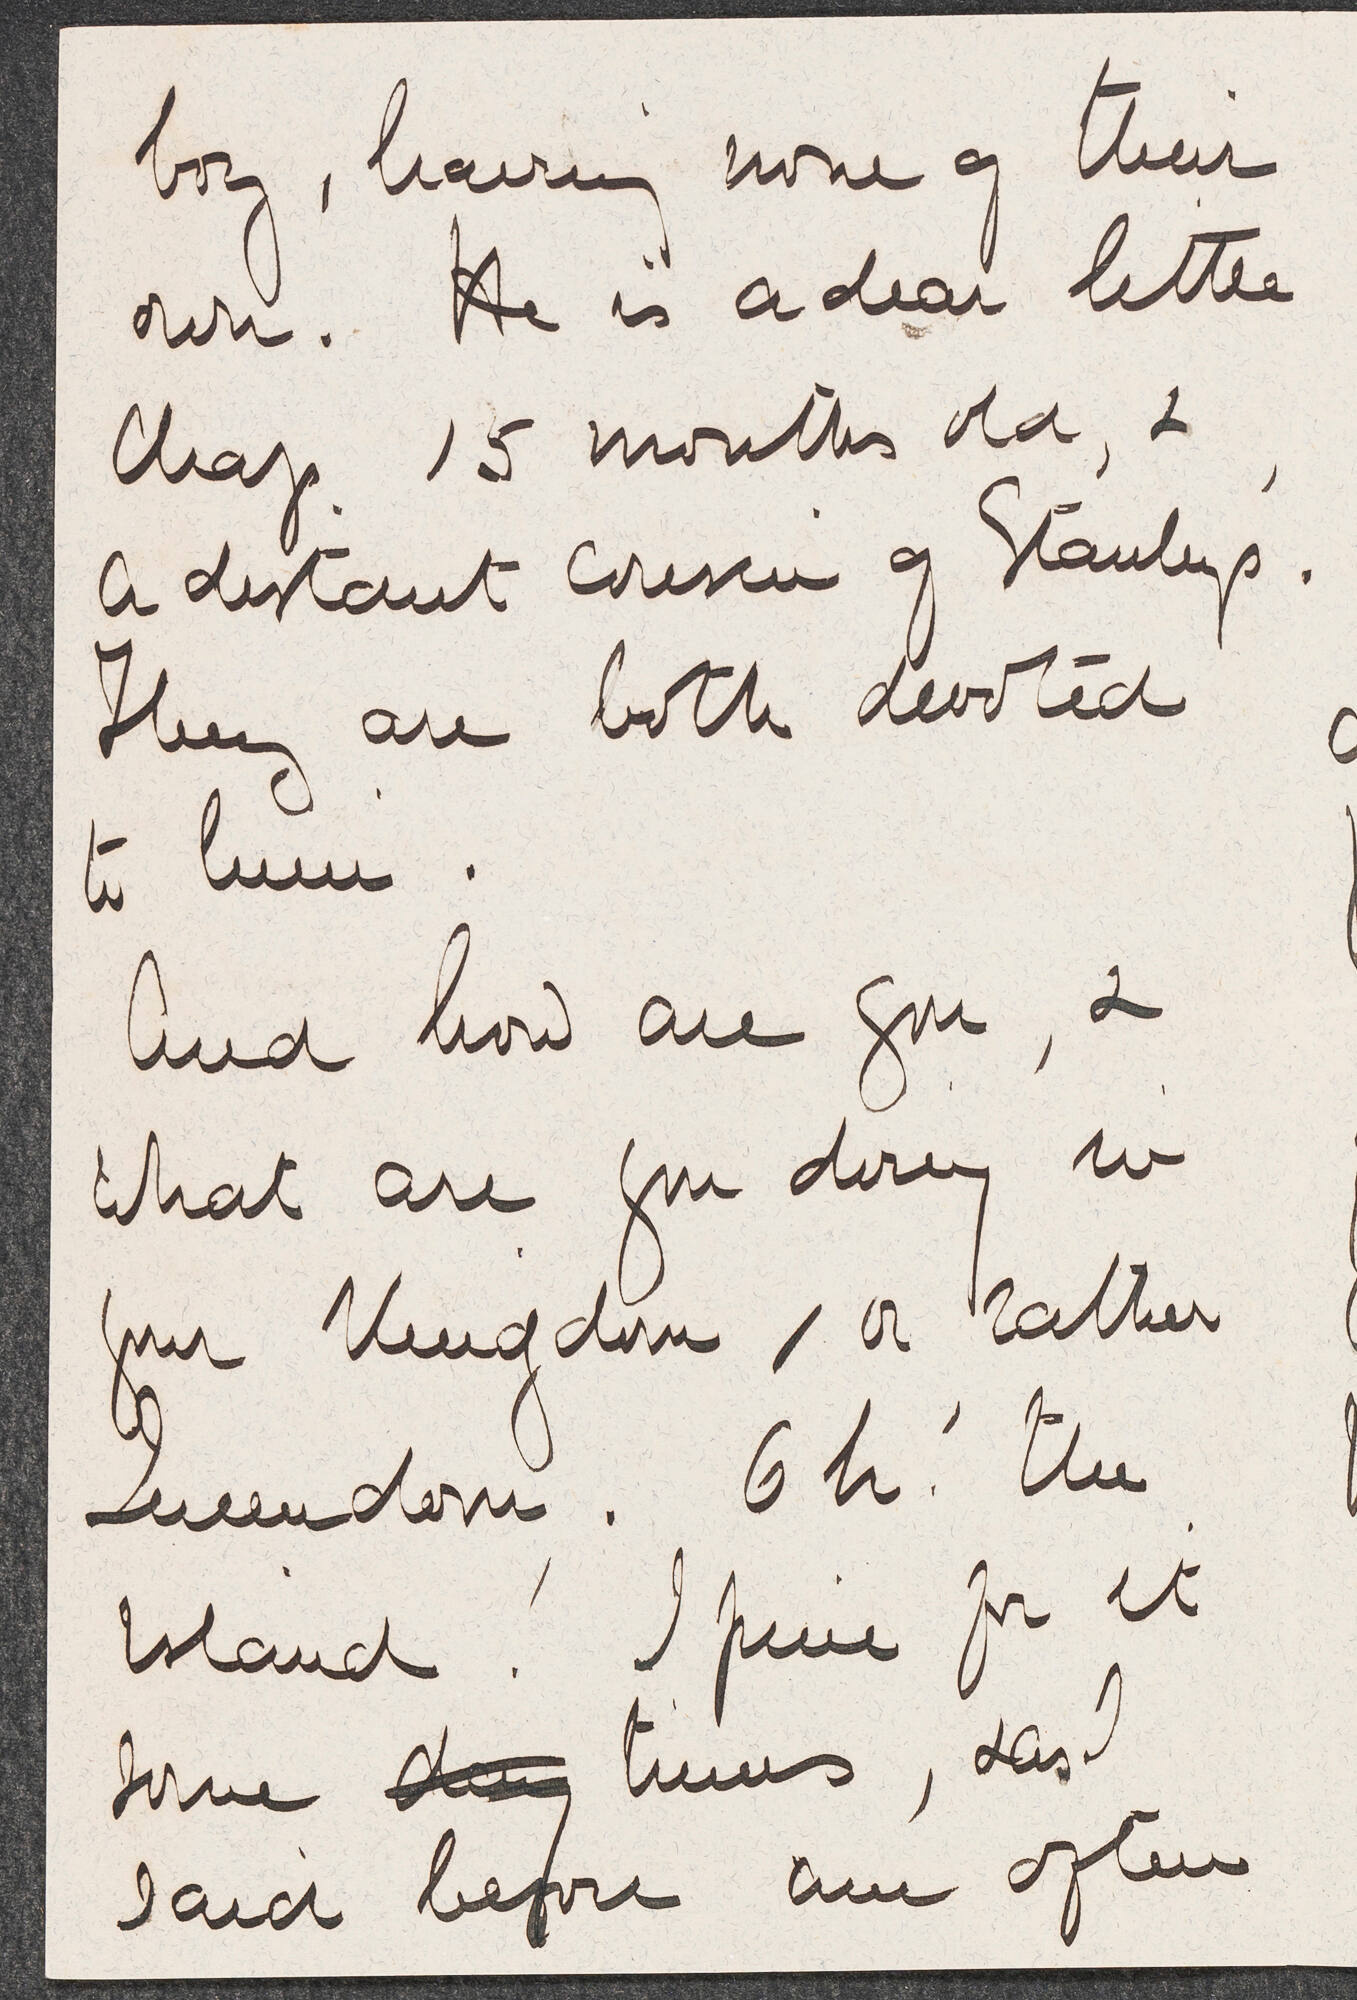 boy, having none of their
own. He is a dear little
Chap. 15 months old, &
a distant cousin of Stanley's.
They are both devoted
to him.
And how are you, &
what are you doing in
your Kingdom, or rather
Queendom. Oh! the
Island! I pine for it
some times, & as I
said before am often